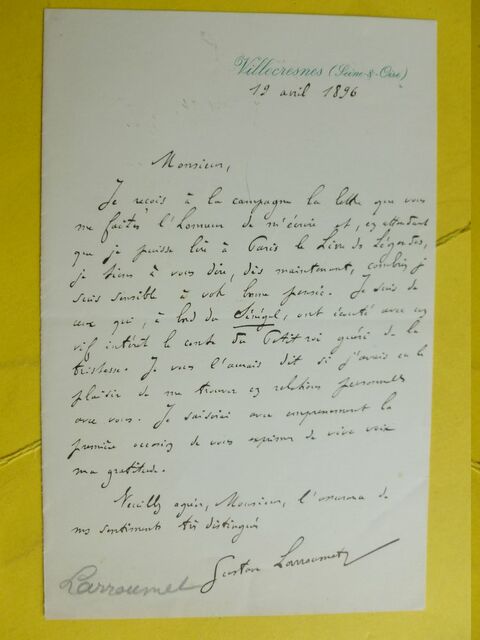 Villecresnes (Seine-&-Oise)
19 avril 1896
Monsieur,
Je reçois à la campagne la lettre que vous
me faites l'honneur de m'écrire et, en attendant
que je puisse lire à Paris le Livre des Légendes,
je tiens à vous dire, dès maintenant, combien je
suis sensible à votre bonne pensée. Je suis de
ceux qui, à bord du Sénégal, ont écouté avec un
vif intérêt le conte du Petit roi guéri de la
tristesse. Je vous l'aurais dit si j'avais eu le
plaisir de me trouver en relations personnelles
avec vous. Je saisirai avec empressement la
première occasion de vous exprimer de vive voix
ma gratitude.
Veuillez agréer, Monsieur, l'assurance de
mes sentiments très distingués
Gustave Larroumet
Larroumet